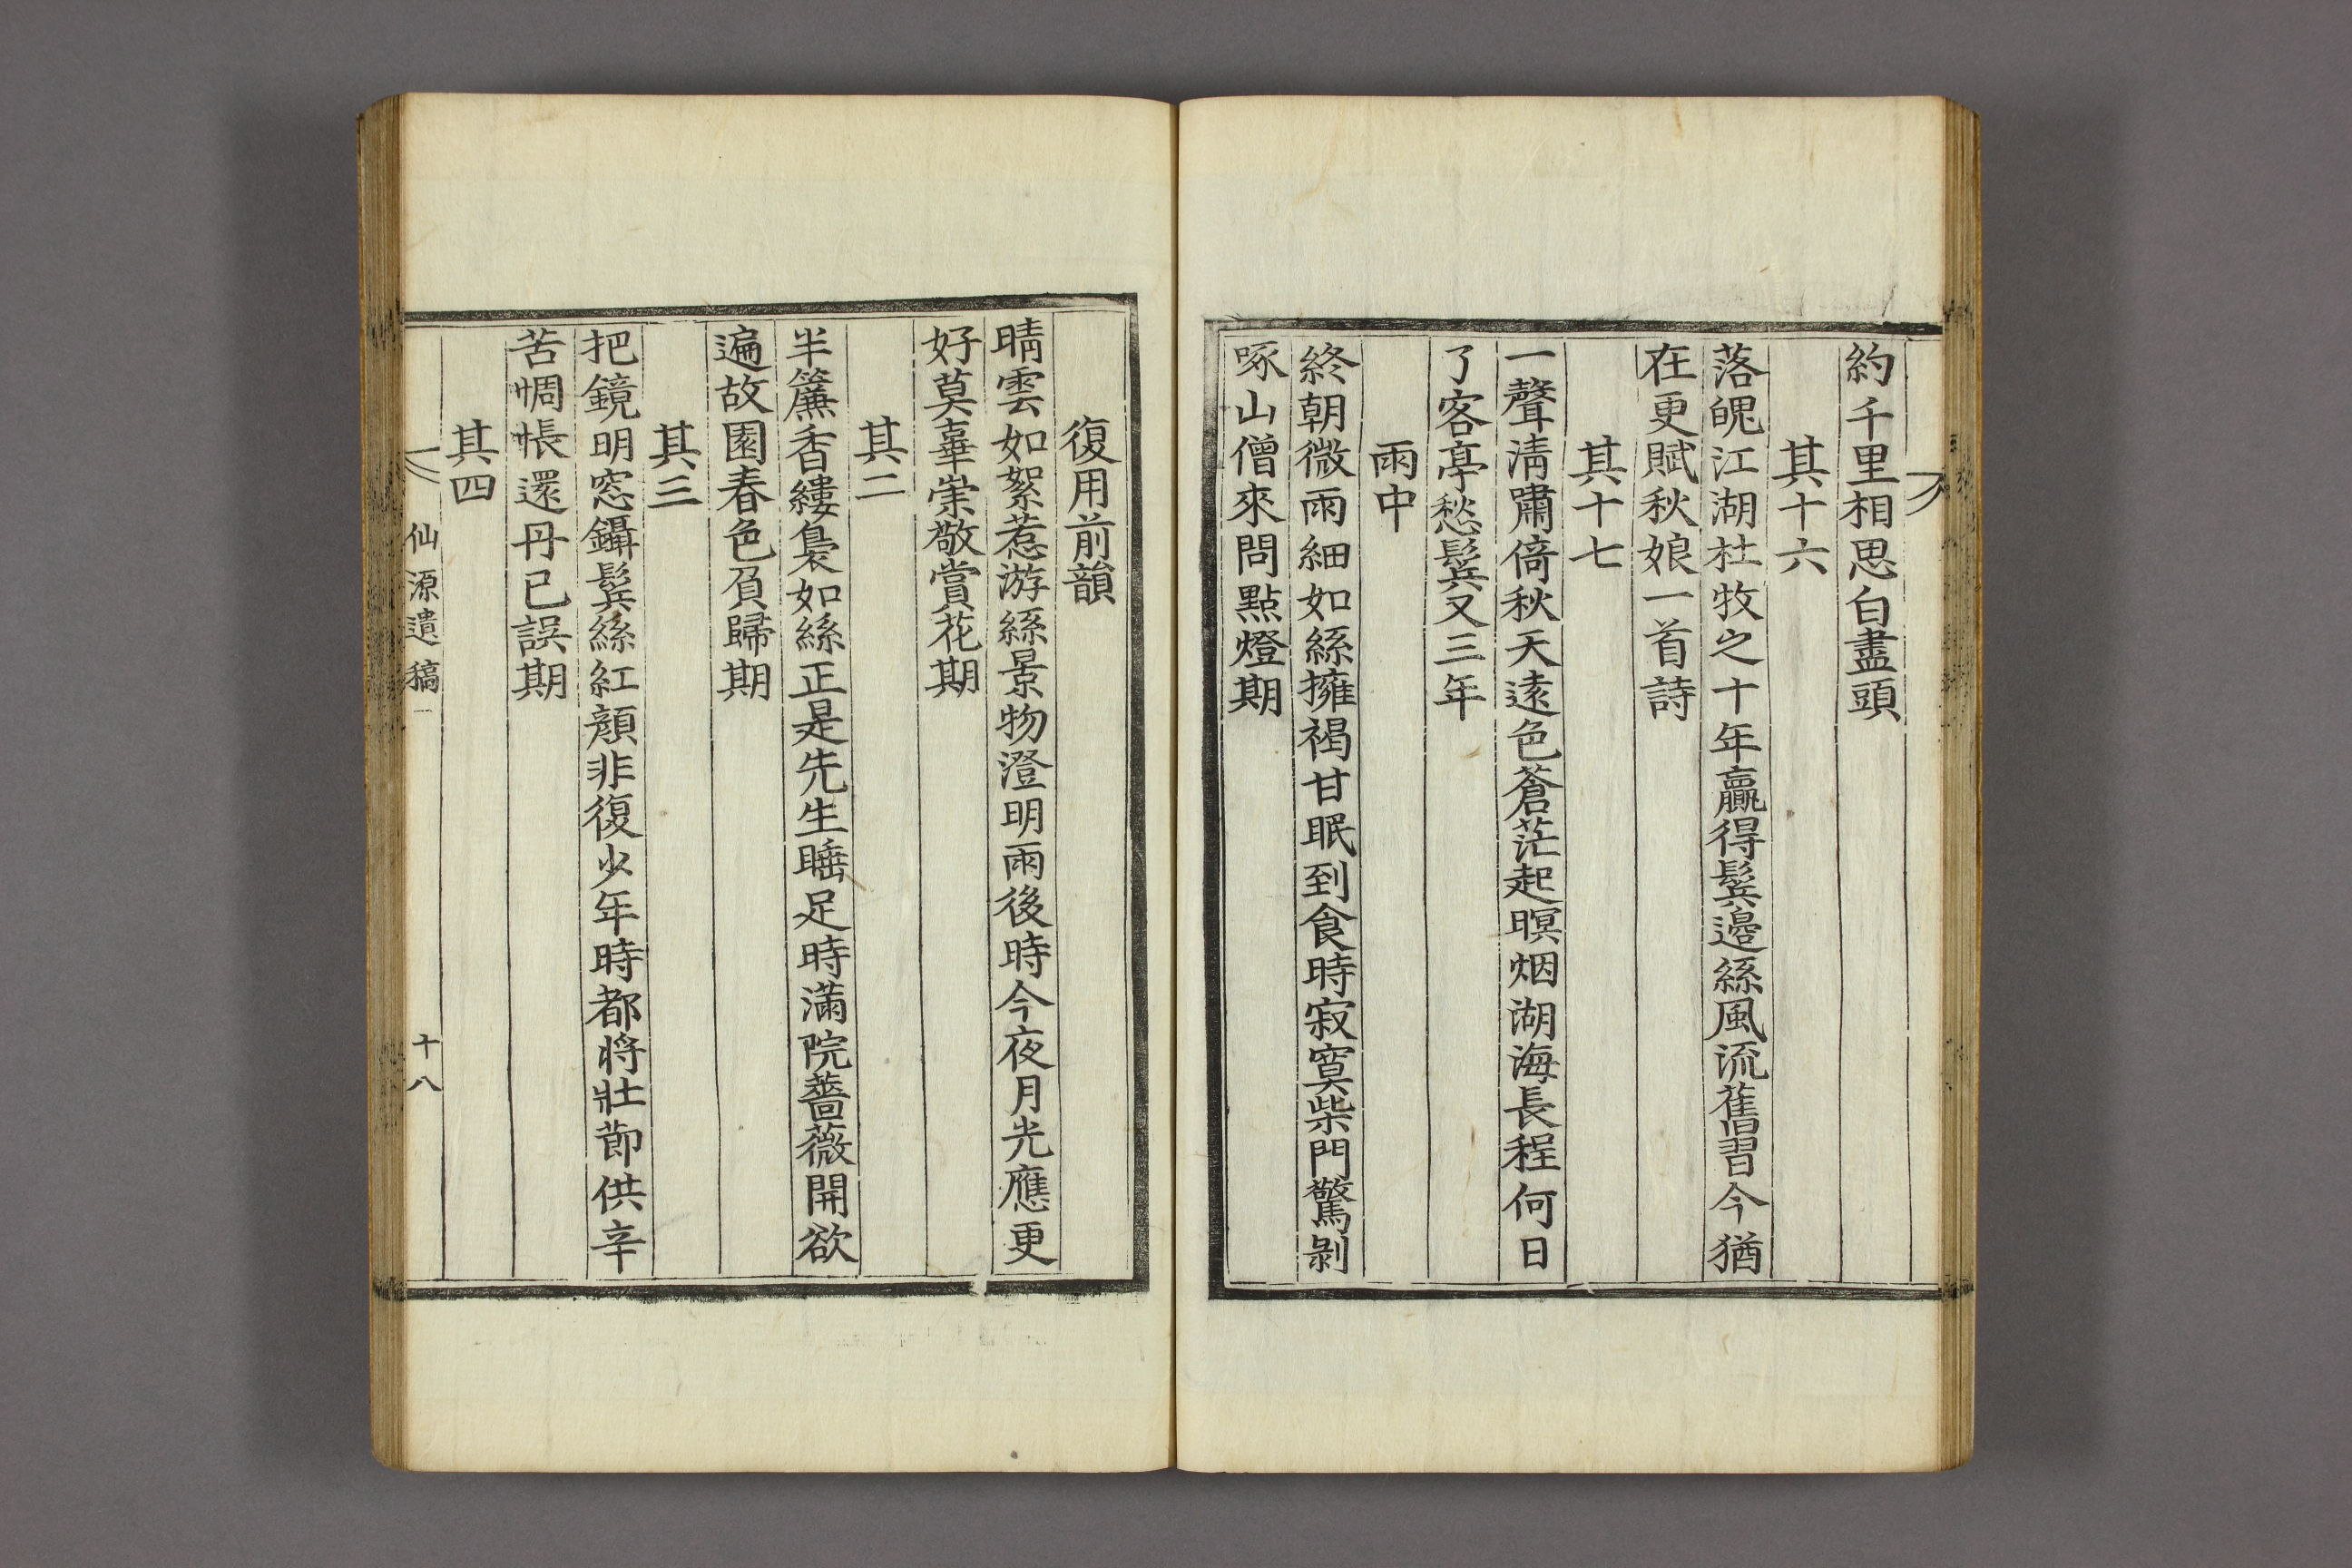 約千里相思白盡頭
其十六
落魄江湖杜牧之十年贏得鬂邊絲風流舊習今猶
在更賦秋娘一首詩
其十七
一聲淸嘯倚秋天遠色蒼茫起暝烟湖海長程何日
了客亭愁鬂又三年
雨中
終朝微雨細如絲擁褐甘眠到食時寂寞柴門驚剝
啄山僧來問點燈期
復用前韻
晴雲如絮惹游絲景物澄明雨後時今夜月光應更
好莫辜崇敬賞花期
其二
半簾香縷裊如絲正是先生睡足時滿院薔薇開欲
遍故園春色負歸期
其三
把鏡明窓鑷鬂絲紅顔非復少年時都將壯節供辛
苦惆悵還丹已誤期
其四
仙源遺稿一
十八